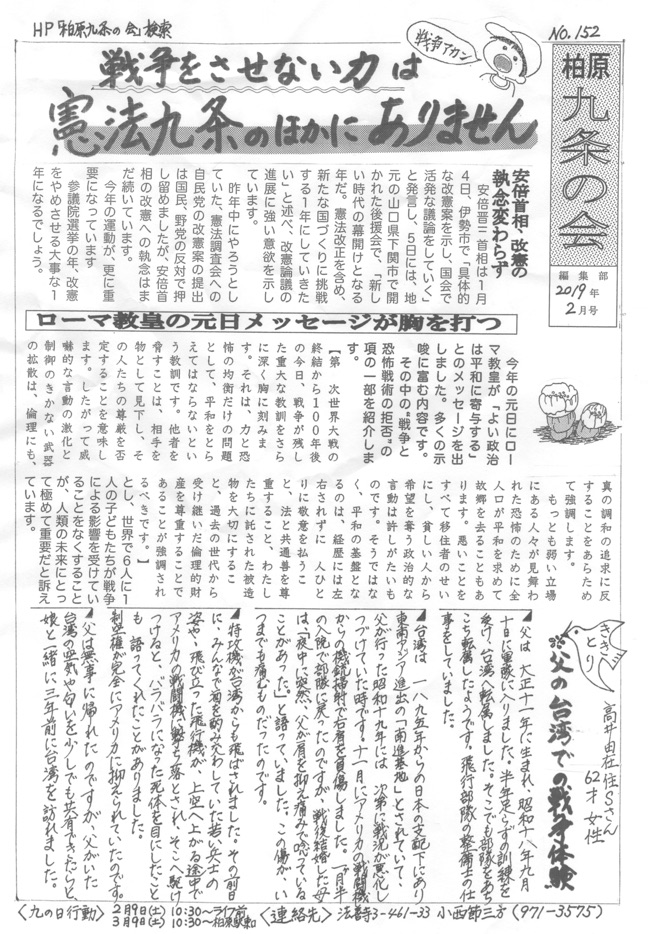 HP「柏原九条の会」検索
戦争アカン
No.152
柏原
九条の会
編集部
2019年
2月号
戦争をさせない力は
憲法九条のほかにありません
安倍首相、改憲の
執念変わらず
安倍晋三首相は1月
4日、伊勢市で「具体的
な改憲案を示し、国会で
活発な議論をしていく」
と発言し、5日には、地
元の山口県下関市で開
かれた後援会で、「新し
い時代の幕開けとなる
年だ。憲法改正を含め、
新たな国づくりに挑戦
する1年にしていきた
い」と述べ、改憲論議の
進展に強い意欲を示し
ています。
昨年中にやろうとし
ていた、憲法調査会への
自民党の改憲案の提出
は国民、野党の反対で押
し留めましたが、安倍首
相の改憲への執念はま
だ続いています。
今年の運動が、更に重
要になっています
参議院選挙の年、改憲
をやめさせる大事な1
年になるでしょう。
ローマ教皇の元日メッセージが胸を打つ
今年の元日にロー
マ教皇が「よい政治
は平和に寄与する」
とのメッセージを出
しました。多くの示
唆に富む内容です。
その中の“戦争と
恐怖戦術の拒否”の
項の一部を紹介しま
す。
【第 次世界大戦の
終結から100年後
の今日、戦争が残し
た重大な教訓をさら
に深く胸に刻みま
す。それは、力と恐
怖の均衡だけの問題
として、平和をとら
えてはならないとい
う教訓です。他者を
脅すことは、相手を
物として見下し、そ
の人たちの尊厳を否
定することを意味し
ます。したがって威
嚇的な言動の激化と
制御のきかない武器
の拡散は、倫理にも、
真の調和の追求に反
することをあらため
て強調します。
もっとも弱い立場
にある人々が見舞わ
れた恐怖のために全
人口が平和を求めて
故郷を去ることもあ
ります。悪いことを
すべて移住者のせい
にし、貧しい人から
希望を奪う政治的な
言動は許しがたいも
のです。そうではな
く、平和の基盤とな
るのは、経歴には左
右されずに 人ひと
りに敬意を払うこ
と、法と共通善を尊
重すること、わたし
たちに託された被造
物を大切にするこ
と、過去の世代から
受け継いだ倫理的財
産を尊重することで
あることが強調され
るべきです。】
とし、世界で6人に1
人の子どもたちが戦争
による影響を受けてい
ることをなくすること
が、人類の未来にとっ
て極めて重要だと訴え
ています。
ききべとり
高井田在住Sさん
62才 女性
※父の台湾での戦争体験
父は 大正十一年に生まれ、昭和十八年九月
十日に軍隊に入りました。半年足らずの訓練を
受け、台湾へ転属しました。そこでも部隊をあち
こち転属したようです。飛行部隊の整備士の仕
事をしていました。
台湾は 一八九五年からの日本の支配下にあり
東南アジア進出への「南進基地」とされていて、
父が行った昭和十九年には 次第に戦況が悪化し
つづけていた時です。十一月にアメリカの戦闘機
からの機銃掃射で右肩を負傷しました。一ヶ月半
の入院で部隊に戻ったのですが 戦後結婚した母
は、「夜中に突然、父が肩を抑え痛みで唸っている
ことがあった。」と語っていました。この傷がい
つまでも痛むものだったのです。
特攻機が台湾からも飛ばされました。その前日
に、みんなで酒を飲み交わしていた若い兵士の
姿や、飛び立った飛行機が、上空へ上がる途中で
アメリカの戦闘機に撃ち落とされ、そこへ駆け
つけると、バラバラになった死体を目にしたこと
も 語ってくれたことがありました。
制空権が完全にアメリカに抑えられていたのです。
父は無事に帰れたのですが、父がいた
台湾の空気や匂いを少しでも共有できたらと、
娘と一緒に三年前に台湾を訪れました。
〈九の日行動〉 2月9日(土) 10:30～ライフ前
3月9日(土) 10:30～柏原駅東和
〈連絡先〉 法善寺3-461-33 小西節三方(971-3575)